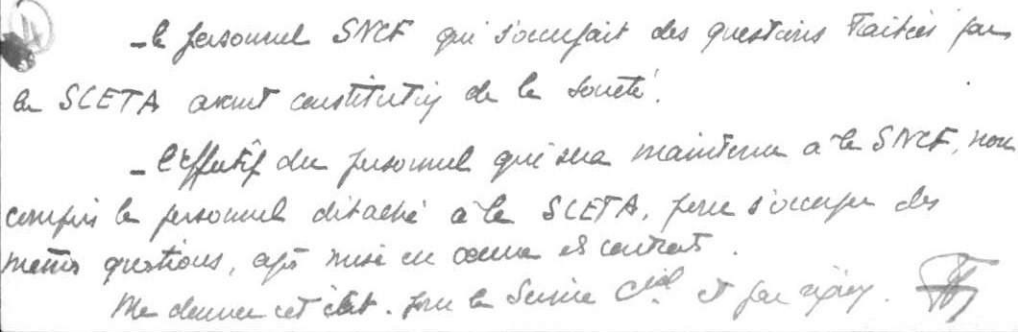 - le personnel SNCF qui s'occupait des questions traitées par
la SCETA avant constitution de la Société.
- l'effectif du personnel qui sera maintenu à la SNCF, non
compris le personnel détaché à la SCETA, pour s'occuper des
mêmes questions, après mise en œuvre du contrat.
Me donner cet état. pour le Service Cial et par région.